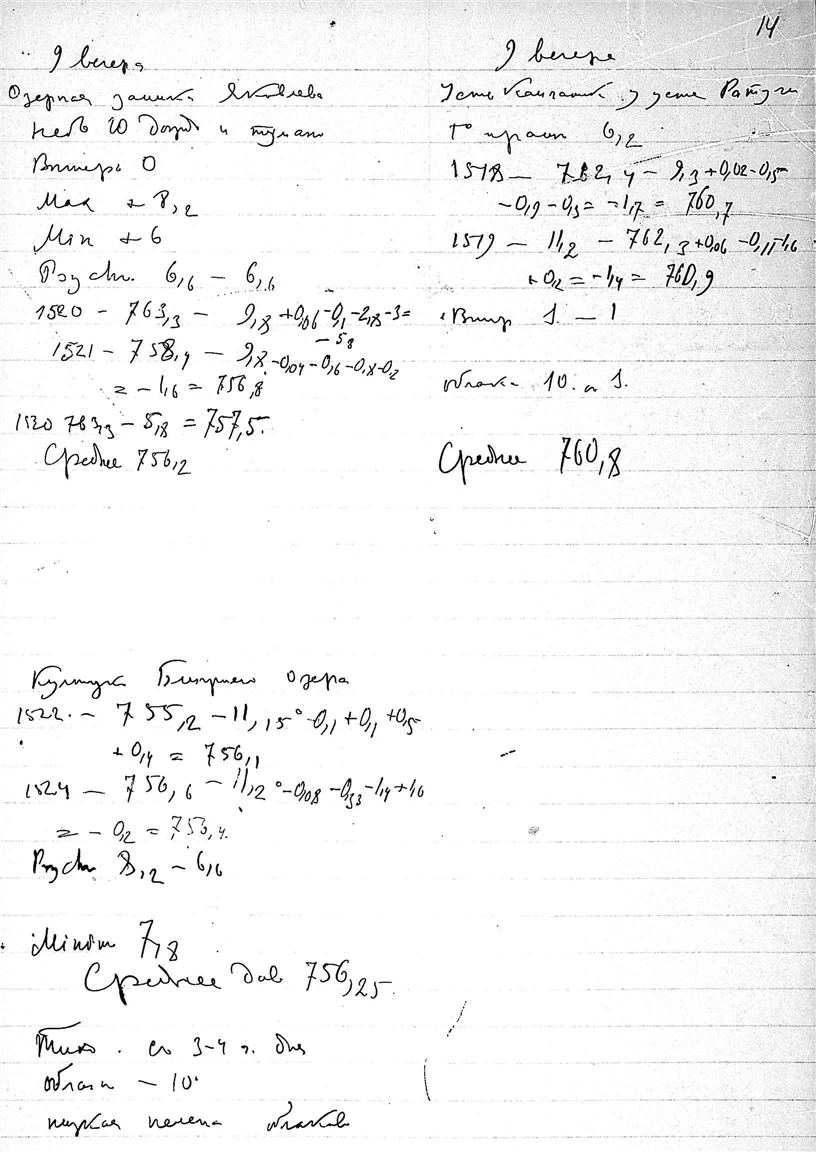 14
9 вечера
Озерная заимка Яковлева
небо 10 дождь и туман
Ветер 0
Max + 8,2
Min + 6
Psychr. 6,6 — 6,6
1520 — 763,3 — 9,8 +0,06 -0,1 -2,8 -3 =
— 5,8
1521 — 758,4 — 9,8 -0,04 -0,6 -0,8 -0,2
= — 1,6 = 756,8
1520 763,3 — 5,8 = 757,5.
Среднее 756,2
9 вечера
Усть Камчатск у устья
T° 6,2
1518 — 762,4 — 9,3 +0,02 -0,5
-0,9 -0,3 = -1,7 = 760,7
1519 — 11,2 — 762,3 +0,06 -0,11 -1,6
+0,2 = -1,4 = 760,9
Ветр 1 — 1
облака 10.
Среднее 760,8
Култук озера
1522. — 755,2 — 11,15° -0,1 +0,1 +0,5
+ 0,4 = 756,1
1524 — 756,6 — 11,2° -0,08 -0,33 -1,4 +1,6
= — 0,2 = 756,4.
Psychr 8,2 — 6,6
Minim 7,8
Среднее дав 756,25.
Тихо. со 3-4 ч. дня
облака — 10
низкая пелена облаков